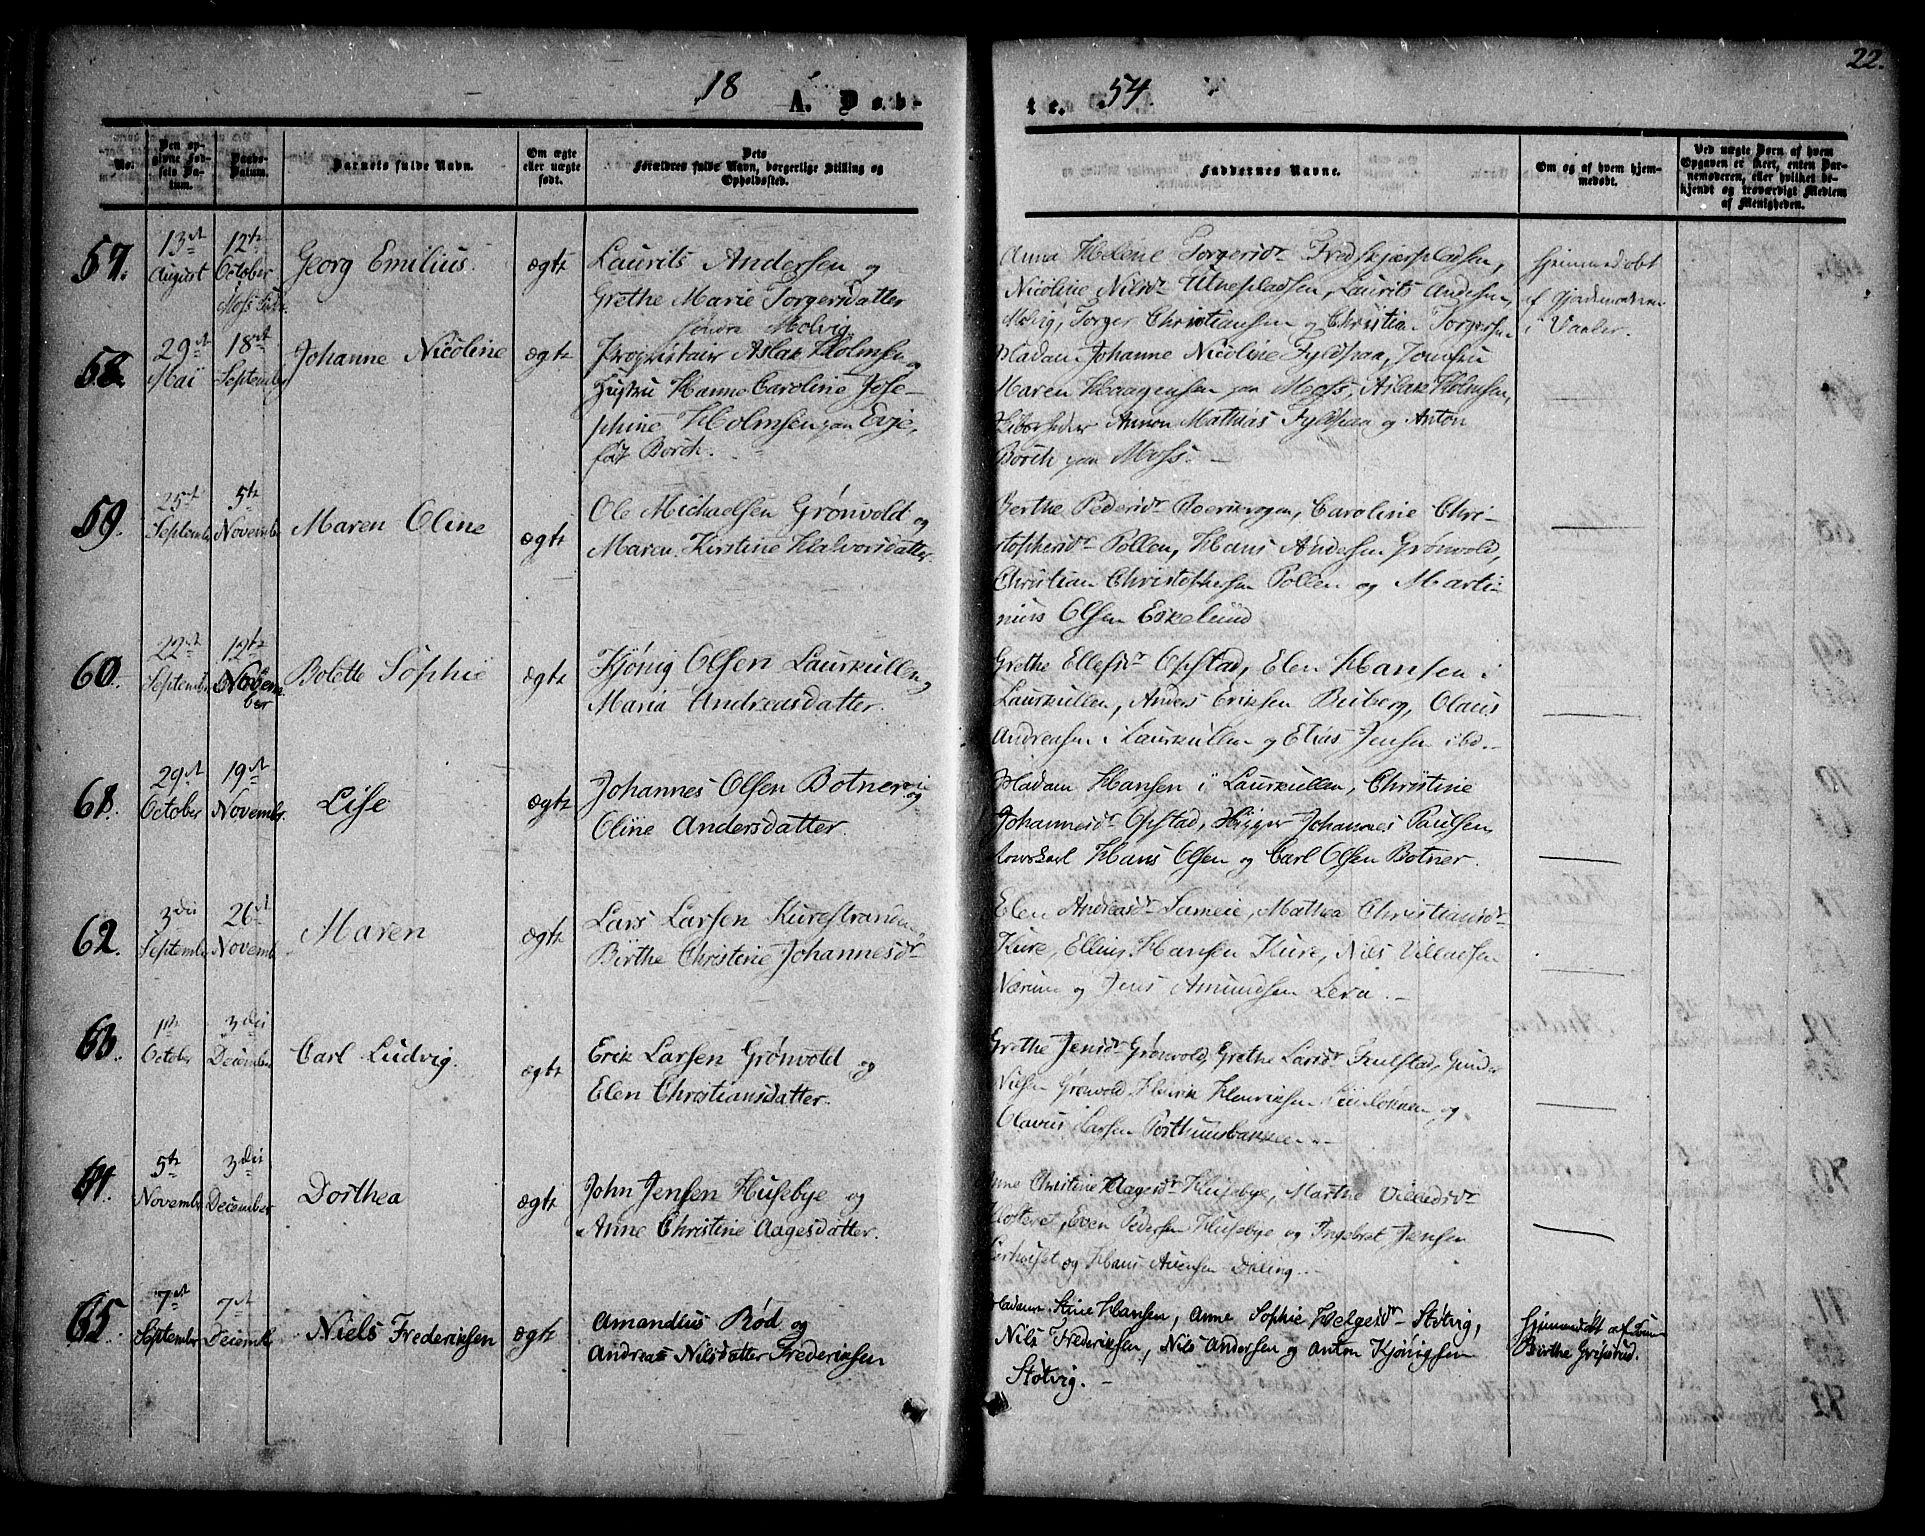 22.
18 54.
A. Døb-
te.
No.
Den op-
givne Fød-
sels Da-
tum.
Daabs-
Datum.
Barnets fulde Navn.
Om ægte
eller uægte
født.
Dets
Forældres fulde Navn, borgerlige Stilling og
Opholdssted.
Faddernes Navne.
Om og af hvem hjem-
medøbt.
Ved uægte Børn af hvem
Opgaven er skeet, enten Bar-
nemoderen, eller hvilket be-
kjendt og troværdigt Medlem
af Menigheden.
57.
13de
August
12te
October
Georg Emilius.
ægte
Laurits Andersen og
Grethe Marie Torgersdatter
søndre Molvig
Anna Helene Torgersdr
Nicoline Nilsdr Laurits Andersen
Molvig, Torger Christiansen og Christian Torgersen
Hjemmedøbt
af Gjordemoderen
i Vaaler.
58.
29de
Mai
18de
September
Johanne Nicoline
ægte
Proprietair Aslak Holmsen og
Hustru Hanne Caroline Jose-
phine Holmsen paa Evje,
født Borch.
Madam Johanne Nicoline Fyldpaa, Jomfru
Maren Haagensen paa Moss, Aslak Holmsen,
Mathias Fyldpaa og Anton
Borch paa Moss.
59.
25de
September
5te
November
Maren Oline
ægte
Ole Michaelsen Grönvold og
Maren Kirstine Halvorsdatter.
Berthe Pedersdr Caroline Chri-
stophersdr Pollen, Hans Andersen Grönvold,
Christian Christophersen Pollen og Marti-
nius Olsen Eskelund
60.
22de
September
12te
November
Bolette Sophie
ægte
Kjönig Olsen Laurkullen og
Maria Andreasdatter.
Grethe Ellefsdr Opstad, Elen Hansen i
Laurkullen, Anders Eriksen Buberg, Olaus
Andreasen i Laurkullen og Elias Jensen ibd.
61.
29de
October
19de
November
Lise
ægte
Johannes Olsen Botner og
Oline Andersdatter.
Madam Hansen i Laurkullen, Christine
Johannesdr Opstad, Johannes Paulsen,
Hans Olsen og Carl Olsen Botner.
62.
3die
September
26de
November
Maren
ægte
Lars Larsen Kurestranden og
Birthe Christine Johannesdr
Elen Andreasdr Sameie, Mathea Christiansdr
Kure, Ellius Hansen Kure, Nils Villadsen
Nærum og Jens Amundsen Lera.
63.
1ste
October
3die
December
Carl Ludvig.
ægte
Erik Larsen Grönvold og
Elen Christiansdatter.
Grethe Jensdr Grönvold, Grethe Larsdr Gunder
Nilsen Grönvold, Henrik Henriksen og
Olavus Larsen
64.
5te
November
3die
December
Dorthea
ægte
John Jensen Husebye og
Anne Christine Aagesdatter.
Anne Christine Aagesdr Husebye, Marthe Villadsdr
Klosteret, Even Pedersen Husebye og Ingebret Jensen
og Hans Dilling.
65.
7de
September
7de
Decembr
Niels Frederiksen
ægte
Amandius Rød og
Andrea Nilsdatter Frederiksen
Madam Stine Hansen, Anne Sophie Helgesdr Støtvig,
Nils Frederiksen, Nils Andersen og Anton Kjønigsen
Støtvig.
Hjemmedøbt af
Birthe Grisrud.